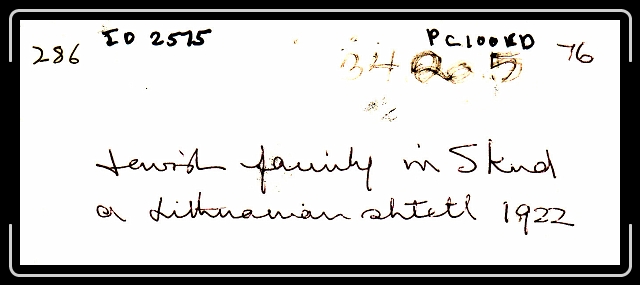 ID 2575 PC100KD
286 76
Jewish family in Skud
a Lithuanian shtetl 1922